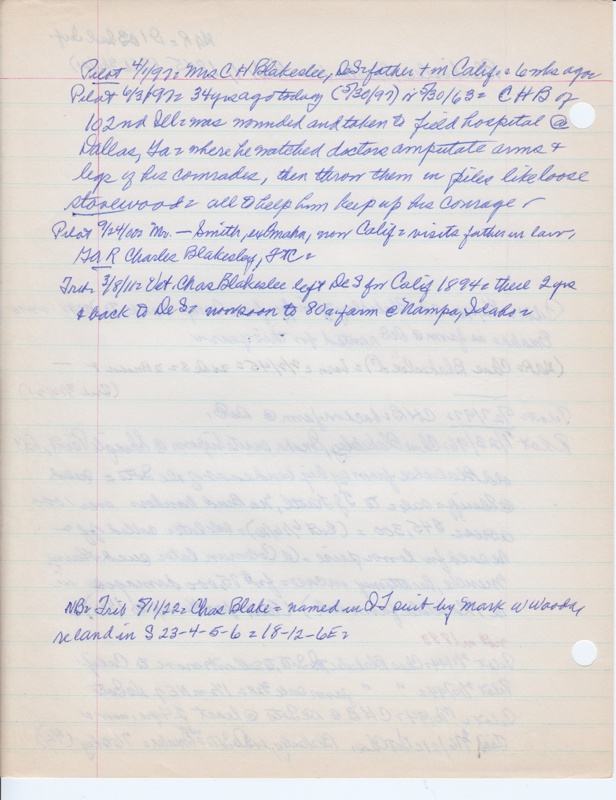 Pilot 4/1/97= Mrs C H Blakeslee, DeS= father + in Calif. = 6 wks ago=
Pilot 6/3/97= 34 yrs ago today (5/30/97) or 5/30/63= C H B of
102nd Ill= was wounded and taken to field hospital @
Dallas, Ga= where he watched doctors amputate arms +
legs of his comrades, then throw them in piles like loose
stovewood= all to help him keep up his courage
Pilot 9/24/ Mr. — Smith, ex Omaha, now Calif= visits father in law,
GAR Charles Blakesley, =
Trib= 3/8/11= Vet. Chas Blakeslee left DeS for Calif 1894= there 2 yrs
+ back to DeS= now soon to 80a farm @ Nampa, Idaho=
NB= Trib 5/11/22= Chas Blake= named in QT suit by Mark W Woods,
re land in S 23-4-5-6=18-12-6E=